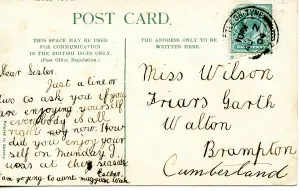 POST CARD.
THIS SPACE MAY BE USED
FOR COMMUNICATION
IN THE BRITISH ISLES ONLY.
(Post Office Regulation.)
THE ADDRESS ONLY TO BE
WRITTEN HERE.
Dear Sister.
Just a line or
two to ask you if you
are enjoying yourself
everybody is all
right now. How
did you enjoy your
self on Munday I
was at the
I am going to aunt maggies
Miss Wilson
Friars Garth
Walton
Brampton
Cumberland
HALFPENNY